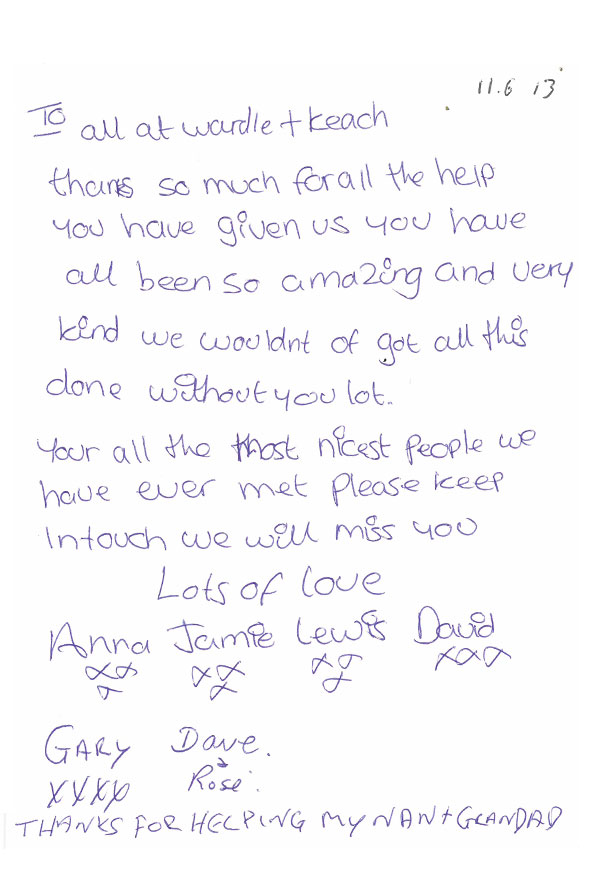 11.6 13
To
all at wardle + keach
thanks so much for all the help
you have given us you have
all been so amazing and very
kind we wouldnt of got all this
done without you lot..
Your all the most nicest people we
have ever met please keep
Intouch we will miss you
Lots of love
Anna Jamie Lewis David
xx xx xx xxx
x x x
GARY Dave.
xxxx & Rose.
THANKS FOR HELPING MY NAN + GRANDAD